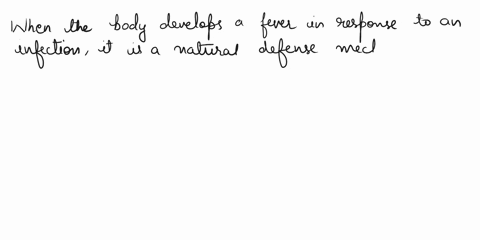 When the body develops a fever in response to an
infection, it is a natural defense mecl